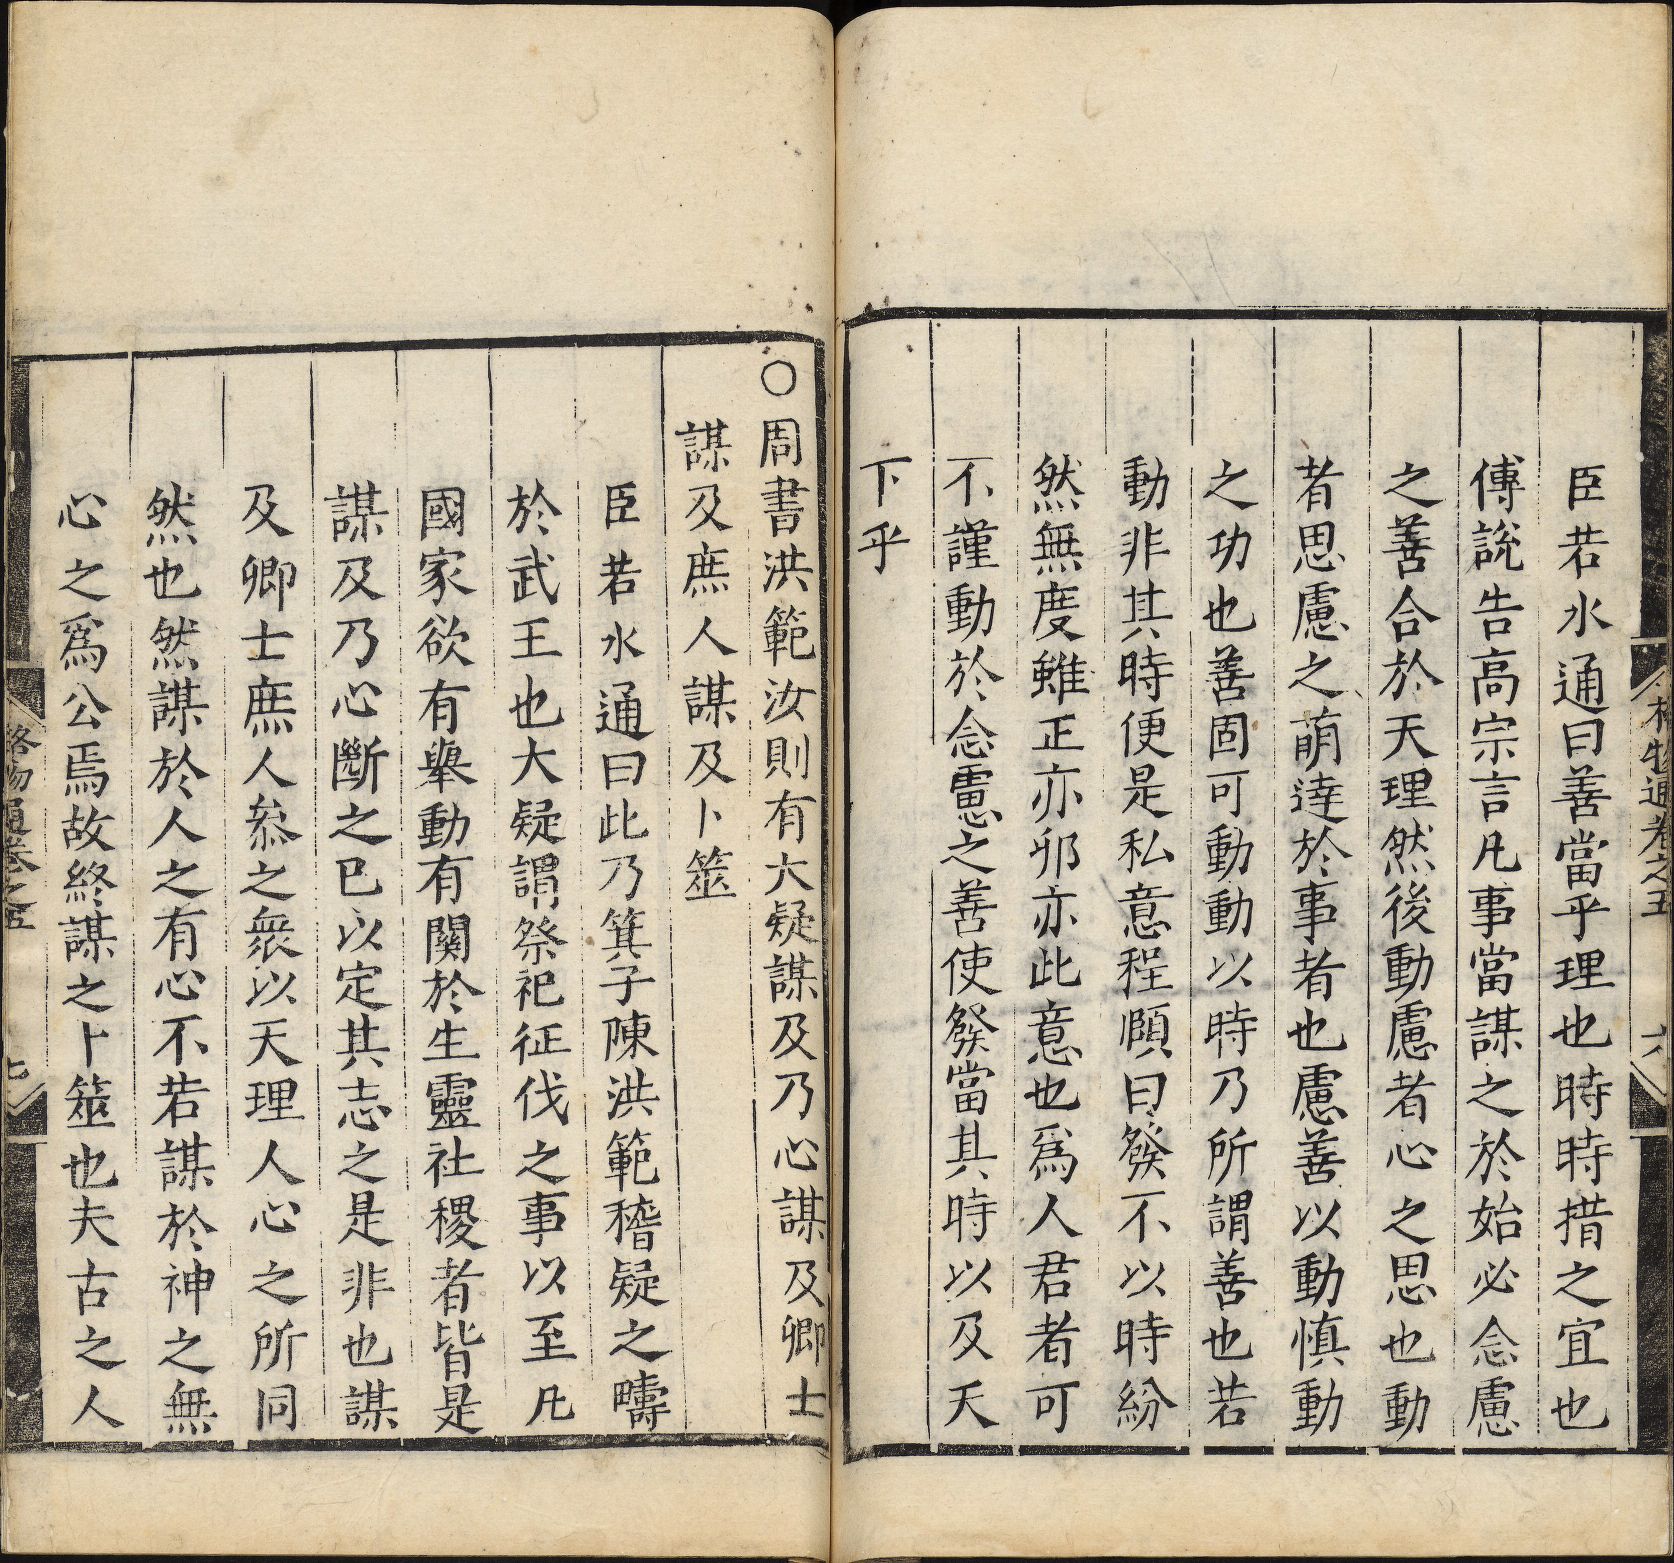 格物通卷之五
六
臣若水通曰善當乎理也時時措之宜也
傅說告高宗言凡事當謀之於始必念慮
之善合於天理然後動慮者心之思也動
者思慮之萌達於事者也慮善以動慎動
之功也善固可動動以時乃所謂善也若
動非其時便是私意程頤曰發不以時紛
然無度雖正亦邪亦此意也爲人君者可
不謹動於念慮之善使發當其時以及天
下乎
○周書洪範汝則有大疑謀及乃心謀及卿士
謀及庶人謀及卜筮
臣若水通曰此乃箕子陳洪範稽疑之疇
於武王也大疑謂祭祀征伐之事以至凡
國家欲有舉動有關於生靈社稷者皆是
謀及乃心斷之已以定其志之是非也謀
及卿士庶人叅之衆以天理人心之所同
然也然謀於人之有心不若謀於神之無
心之爲公焉故終謀之卜筮也夫古之人
格物通卷之五
七